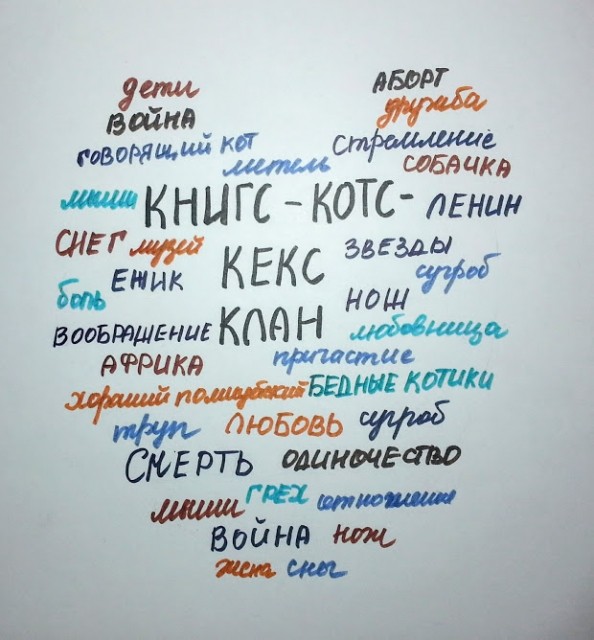 дети АБОРТ
ВОЙНА дружба
ГОВОРЯЩИЙ КОТ Стремление
метель СОБАЧКА
мыши КНИГС - КОТС - ЛЕНИН
СНЕГ музей КЕКС ЗВЕЗДЫ
ЕЖИК сугроб
боль НОШ
ВООБРАЖЕНИЕ КЛАН любовница
АФРИКА причастие
хороший полицейский БЕДНЫЕ КОТИКИ
труп ЛЮБОВЬ сугроб
СМЕРТЬ ОДИНОЧЕСТВО
мыши ГРЕХ отношения
ВОЙНА нож
жена сны